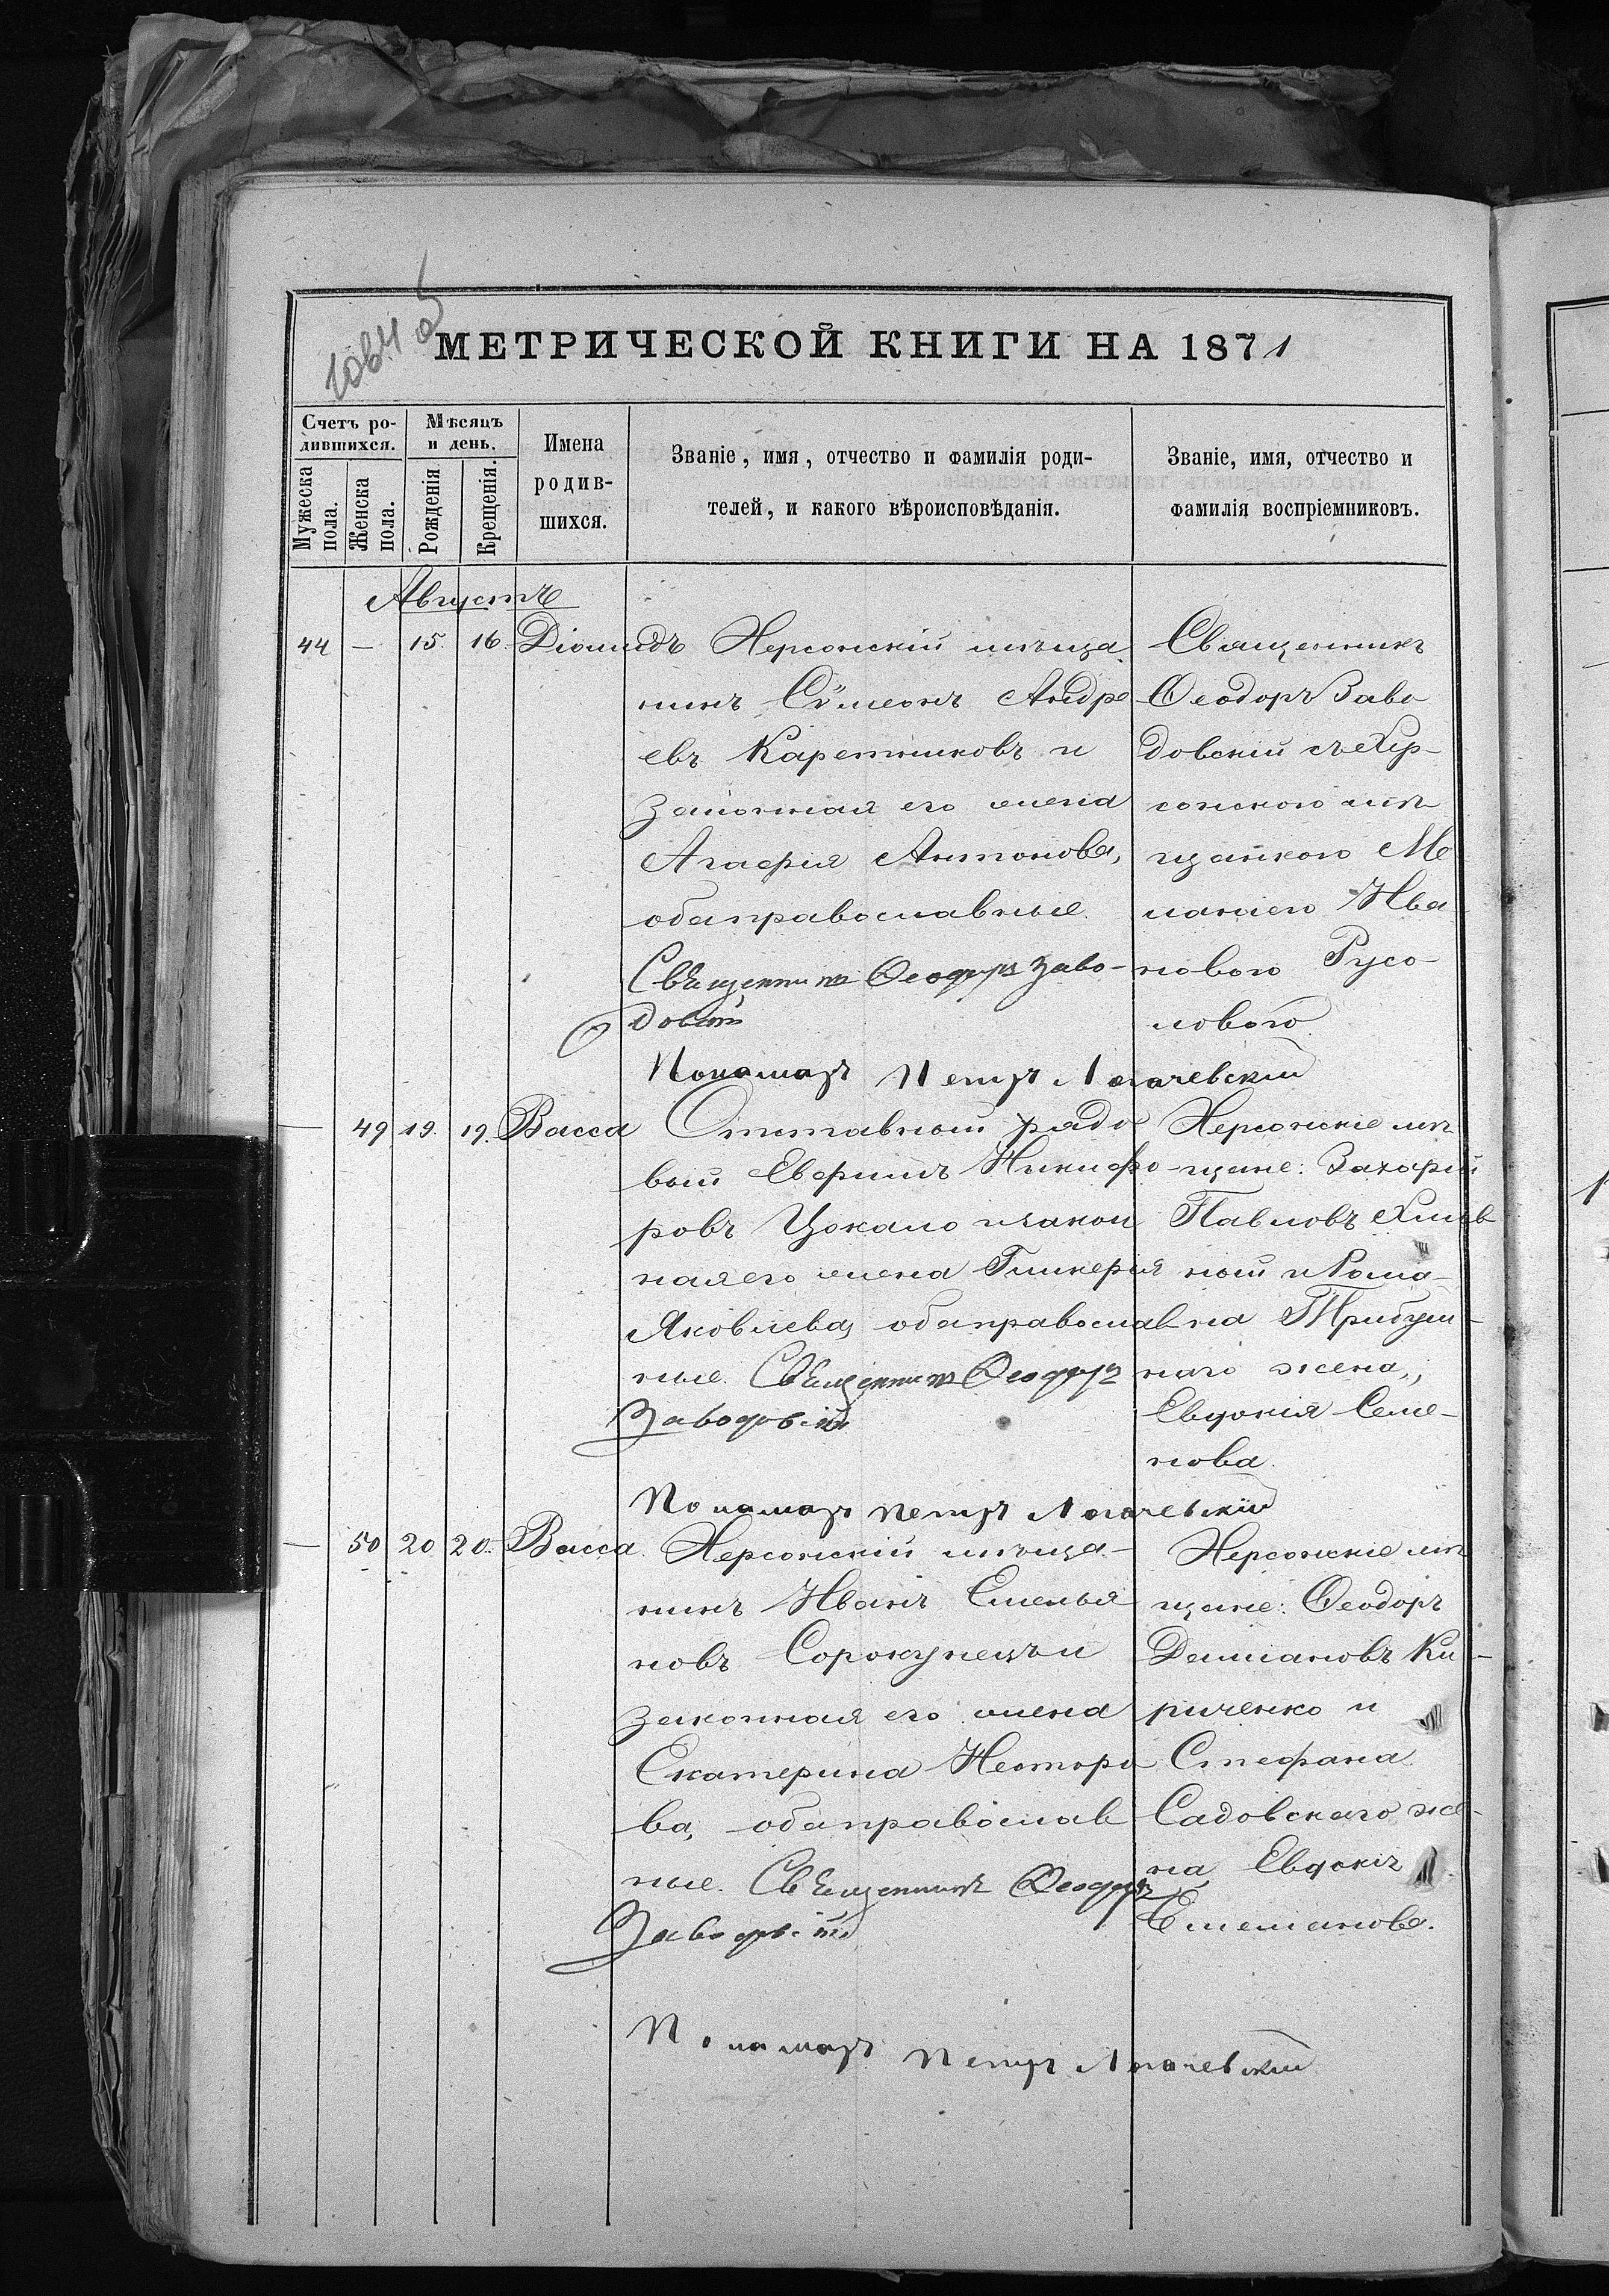 МЕТРИЧЕСКОЙ КНИГИ НА 1871
Счетъ ро-
дившихся.
Мѣсяцъ
и день.
Имена
родив-
шихся.
Званіе, имя, отчество и фамилія роди-
телей, и какого вѣроисповѣданія.
Званіе, имя, отчество и
фамилія воспріемниковъ.
Мужеска
пола.
Женска
пола.
Рожденія
Крещенія.
Августъ
44 — 15. 16. Діомидъ
Херсонскій мѣща
нинъ Сѵмеонъ Андре
евъ Каретниковъ и
законная его жена
Агафія Антонова,
оба православные.
Священникъ Ѳеодоръ Заво-
довскій
Пономарь Петръ Логачевскій
Священникъ
Ѳеодоръ Заво
довскій съ Хер-
сонскою мѣ
щанкою Ме
ланіею Ива
новою Русо-
ловою.
— 49 19. 19. Васса
Отставный рядо
вый Евфимъ Никифо-
ровъ Цокало и закон
ная его жена Гликерія
Яковлева, оба православ
ные. Священникъ Ѳеодоръ
Заводовскій
Пономарь Петръ Логачевскій
Херсонскіе мѣ
щане: Захарій
Павловъ Хмѣв
ный и Рома-
на Трибуш-
наго жена,,
Евдокія Семе-
нова.
— 50 20 20. Васса.
Херсонскій мѣща-
нинъ Иванъ Емелья
новъ Сорокунецъ и
законная его жена
Екатерина Несторо
ва, оба православ
ные. Священникъ Ѳеодоръ
Заводовскій
Пономарь Петръ Логачевскій
Херсонскіе мѣ
щане: Ѳеодоръ
Деміановъ Ки-
риченко и
Стефана
Садовскаго же-
на, Евдокія
Емеліанова.